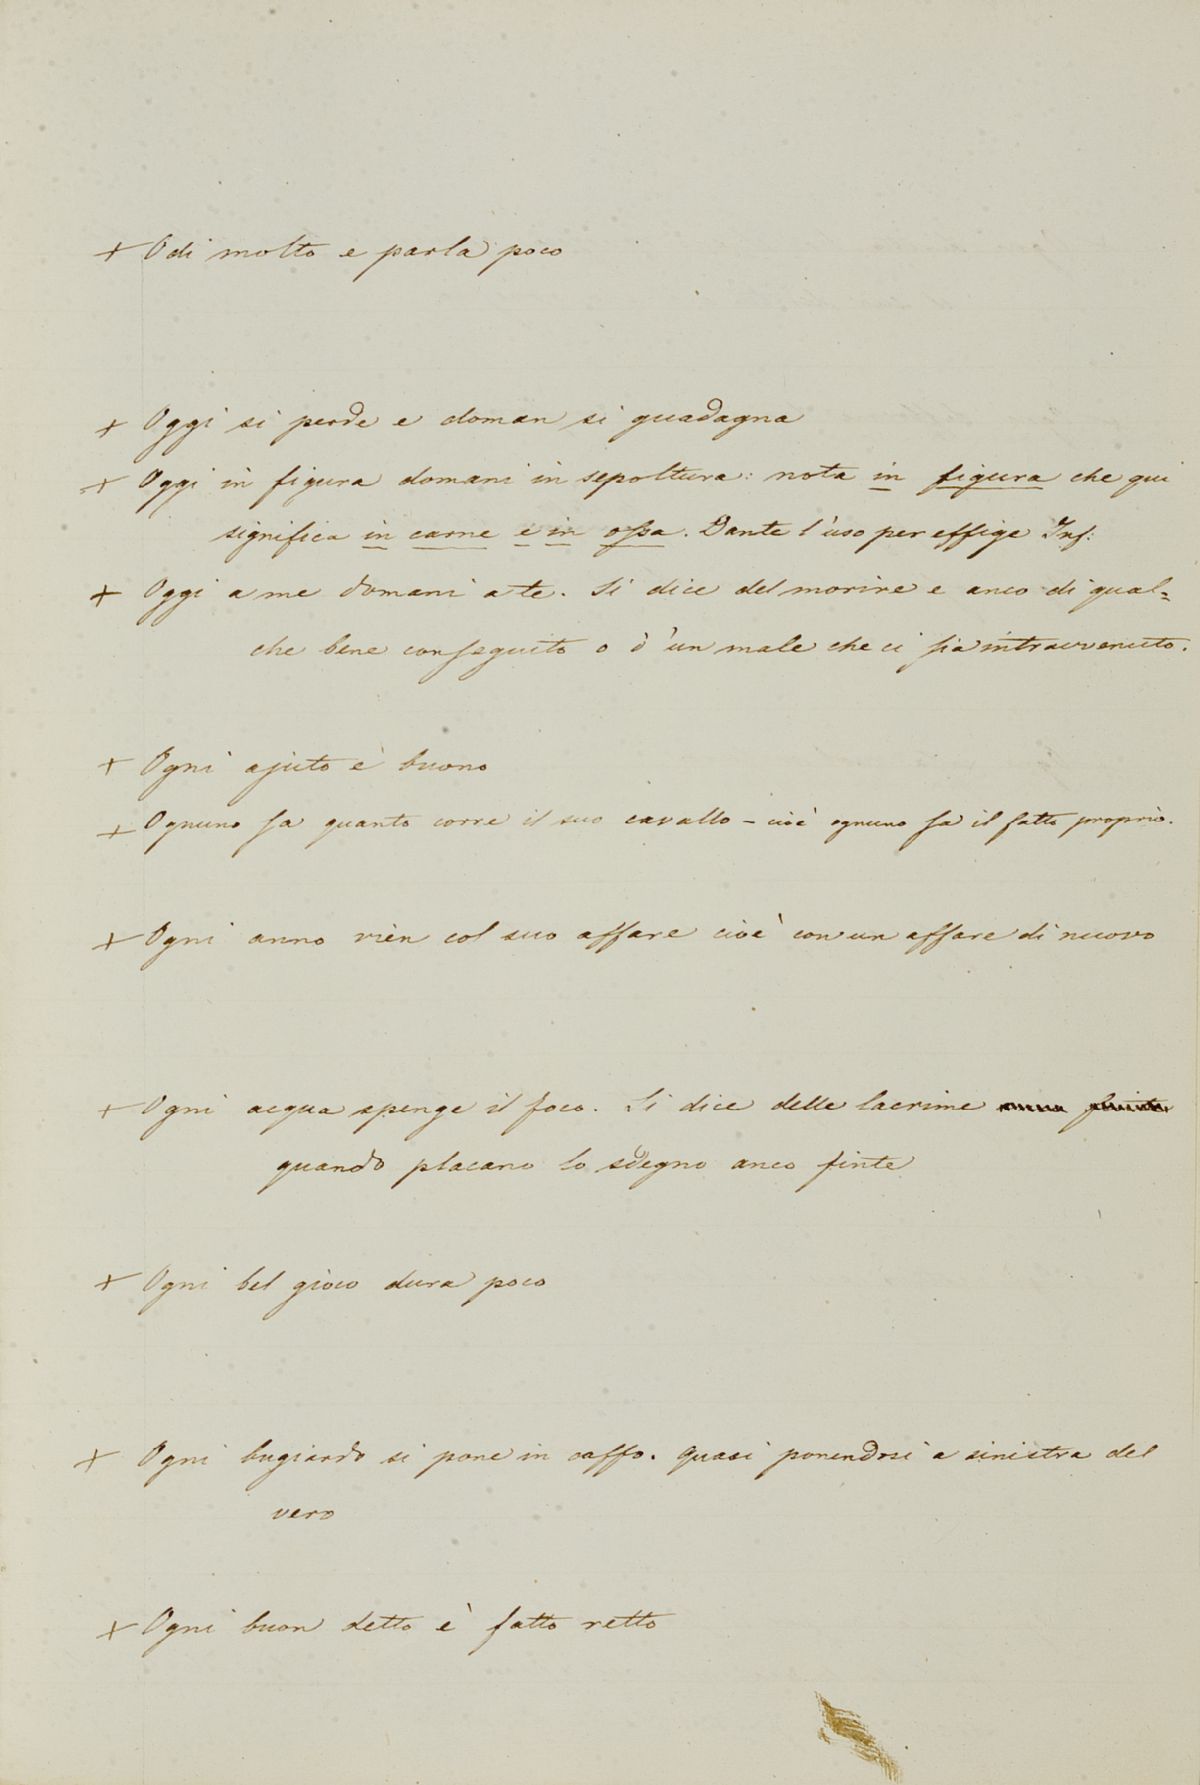 + Odi molto e parla poco
+ Oggi si perde e doman si guadagna
+ Oggi in figura domani in sepoltura: nota in figura che qui
significa in carne e in ossa. Dante l'uso per effige Inf:
+ Oggi a me domani a te. Si dice del morire e anco di qual=
che bene conseguito o d'un male che ci sia intravvenuto.
+ Ogni ajuto è buono
+ Ognuno sa quanto corre il suo cavallo – cioè ognuno sa il fatto proprio.
+ Ogni anno vien col suo affare cioè con un affare di nuovo
+ Ogni acqua spenge il foco. Si dice delle lacrime
quando placano lo sdegno anco finte
+ Ogni bel gioco dura poco
+ Ogni bugiardo si pone in caffo. quasi ponendosi a sinistra del
vero
+ Ogni buon detto è fatto retto